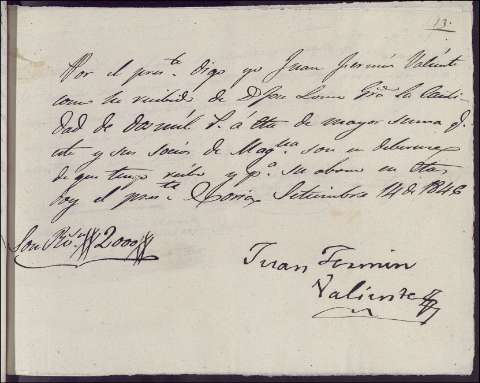 13.
Por el pres.te digo yo Juan Fermin Valiente
como he recibido de Dn Jose Lorn Gro la Canti-
dad de dosmil r.s á Cta de mayor suma q.
este y sus socios de son en deberme
de que tengo recibo y p.a su abono en Ctas
doy el pres.te Setiembre 14 de 1846
Son Rs. vn # 2000 #
Juan Fermin
Valiente